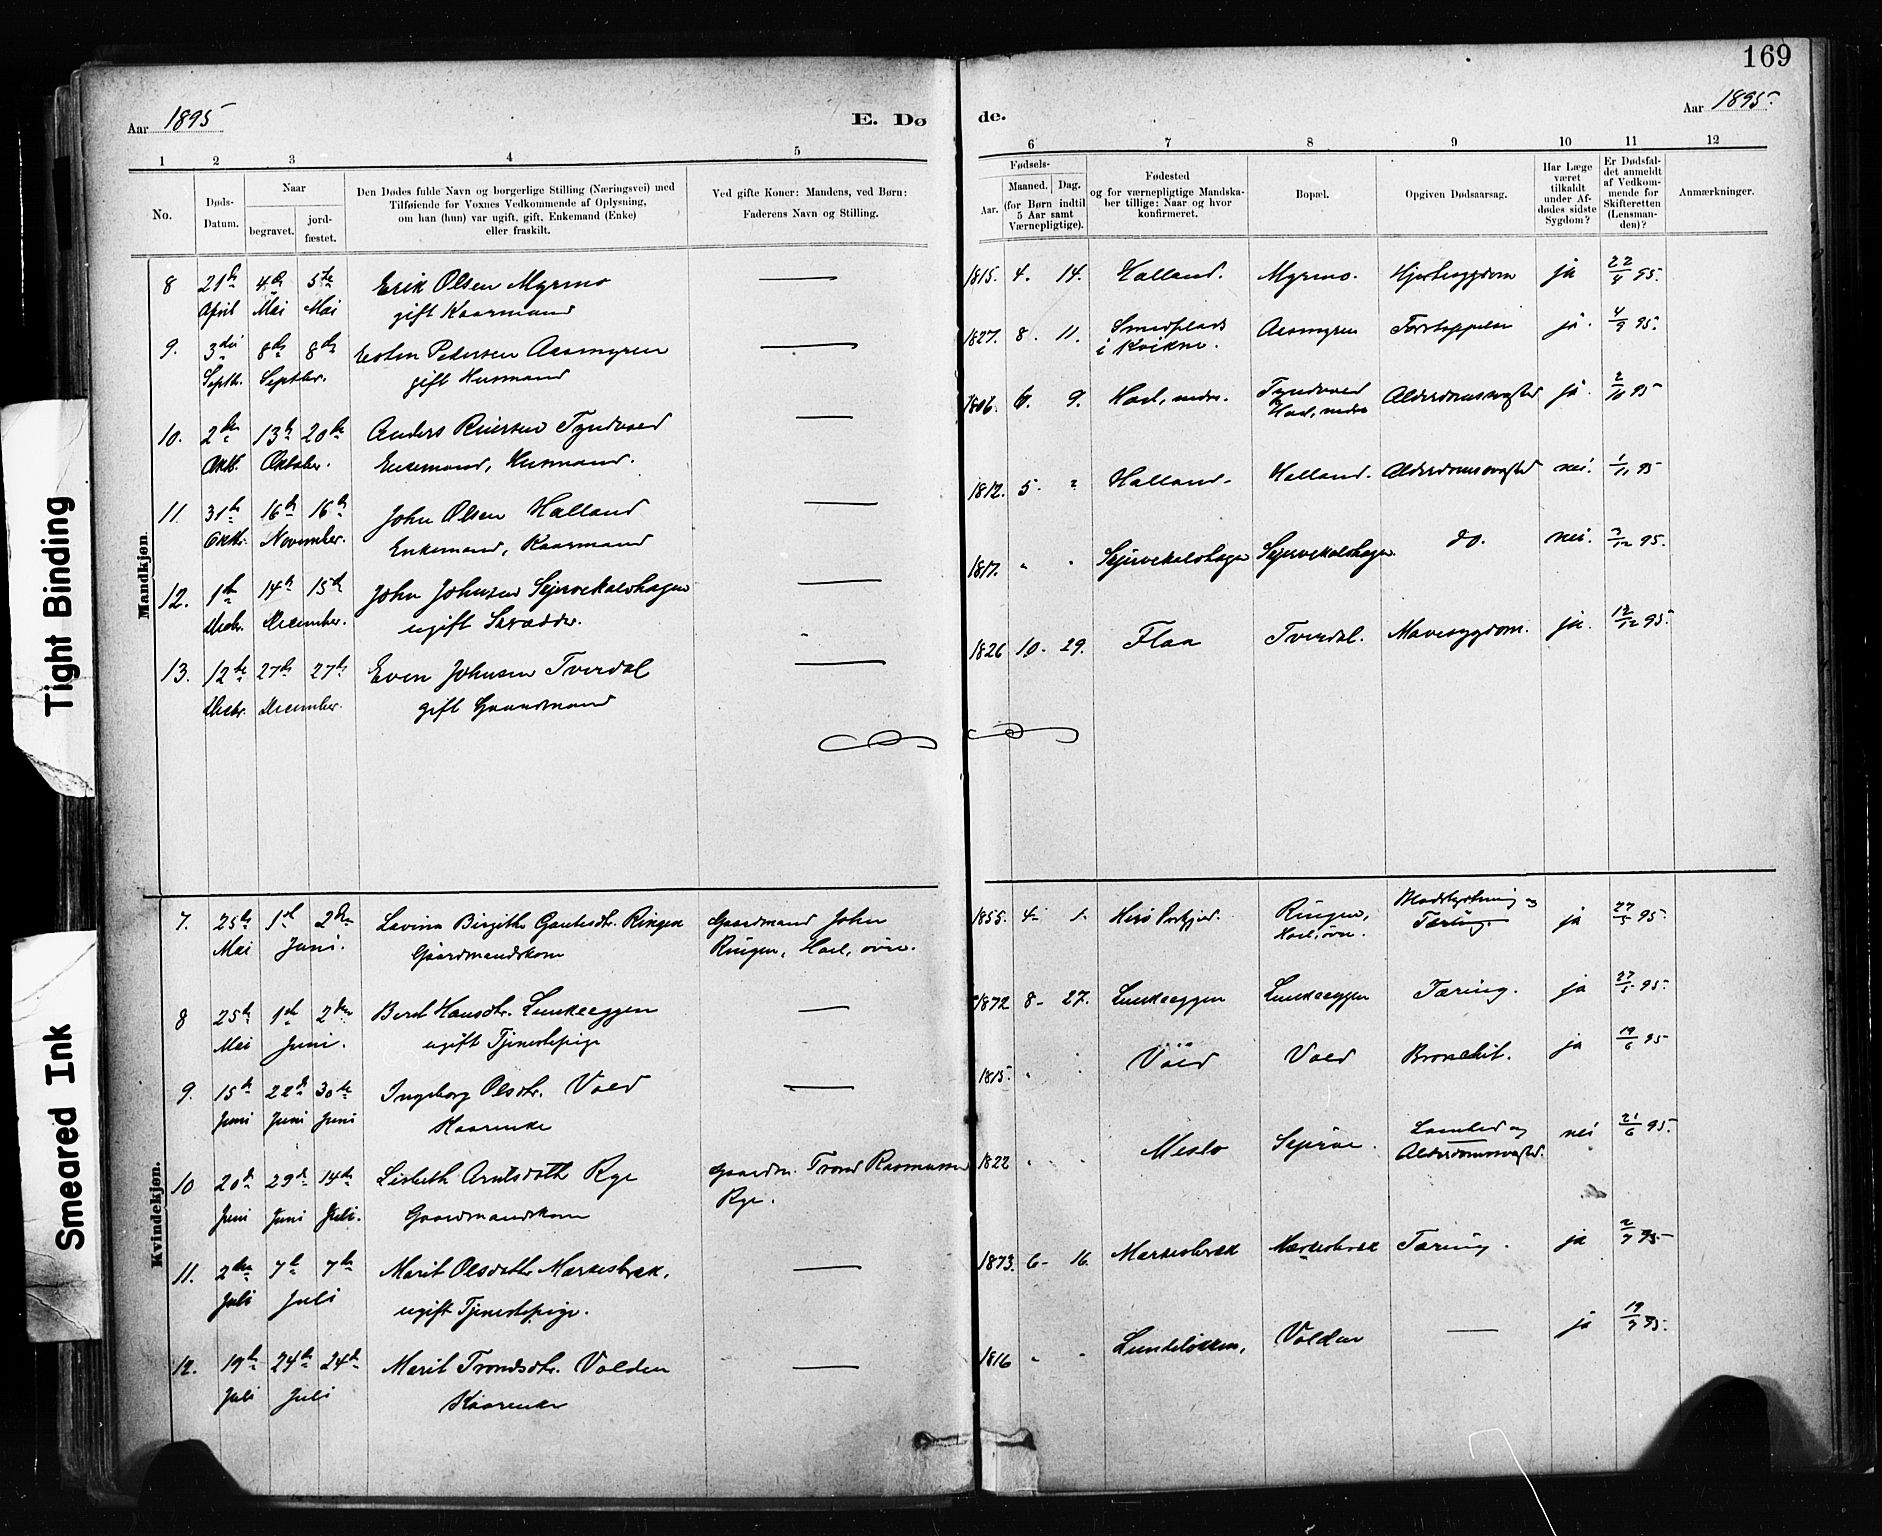 169
Aar 1895
E. Dø
de.
Aar 1895.
1 2 3 4 5
6 7 8 9 10 11 12
No.
Døds-Datum.
Naar
begravet.
jord-fæstet.
Den Dødes fulde Navn og borgerlige Stilling (Næringsvei) med
Tilføiende for Voxnes Vedkommende af Oplysning,
om han (hun) var ugift, gift, Enkemand (Enke)
eller fraskilt.
Ved gifte Koner: Mandens, ved Børn:
Faderens Navn og Stilling.
Fødsels-
Aar.
Maaned. Dag.
(for Børn indtil
5 Aar samt
Værnepligtige).
Fødested
og for værnepligtige Mandska-
ber tillige: Naar og hvor
konfirmeret.
Bopæl.
Opgiven Dødsaarsag.
Har Læge
været
tilkaldt
under Af-
dødes sidste
Sygdom?
Er Dødsfal-
det anmeldt
af Vedkom-
mende for
Skifteretten
(Lensman-
den)?
Anmærkninger.
Mandkjøn.
8 21de 4de 5te Erik Olsen Myrmo — 1815. 4. 14. Halland. Myrmo. Hjertesygdom ja 22/4 95.
April Mai Mai gift Kaarmand
9. 3die 8de 8de Esten Pedersen Aasmyren — 1827. 8. 11. Smedplads Aasmyren ja. 4/9 95.
Septb. Septber. gift Husmand i Kvikne.
10. 2den 13de 20de Anders Tyndvoed — 1806. 6. 9. Hoel, nedre. Tyndvoed Alderdomssvaghed ja. 2/10 95
Oktb. Oktober. Enkemand, Husmand. Hoel, nedre
11. 31te 16de 16de John Olsen Halland — 1812. 5. " Halland. Halland. Alderdomssvaghed nei. 1/11 95
Oktb. November. Enkemand, Kaarmand
12. 1ste 14de 15de John Johnsen — 1817. " " do. nei. 3/12 95.
Decbr. December. ugift Skrædder.
13. 12te 27de 27de Even Johnsen Tverdal — 1826 10. 29. Flaa Tverdal. Mavesygdom. ja. 12/12 95.
Decbr. December. gift Gaardmand
Kvindekjøn.
7. 25de 1ste 2den Lovina Birgithe Ringen Gaardmand John 1855. 4. 1. Ringen, ja 27/5 95
Mai Juni. Gaardmandskone Ringen, Hoel, øvre. Hoel, øvre. Tæring.
8 25de 1ste 2den Berit Hansdtr. Lunkeeggen — 1872 8. 27. Lunkeeggen Lunkeeggen Tæring. ja 27/5 95.
Mai Juni. ugift Tjenestepige
9. 15de 22de 30te Ingeborg Olsdtr. Vold — 1815. " " Vold Vold Bronchit. ja 19/6 95
Juni Juni Juni Kaarenke
10 20de 29de 14de Lisbeth Arntsdatter Rye Gaardm. Trond Rasmussen 1822 " " Meslo Lamhed og nei 21/6 95.
Juni Juni Juli. Gaardmandskone Rye. Alderdomssvaghed.
11. 2den 7de 7de Marit Olsdatter Mærkesbæk. — 1873. 6. 16. Mærkesbæk Mærkesbæk Tæring. ja 2/7 95
Juli Juli ugift Tjenestepige.
12. 19de 24de 24de Marit Trondsdtr. Volden — 1816 " " Volden — ja 19/7 95.
Juli Juli Kaarenke
Tight Binding
Smeared Ink